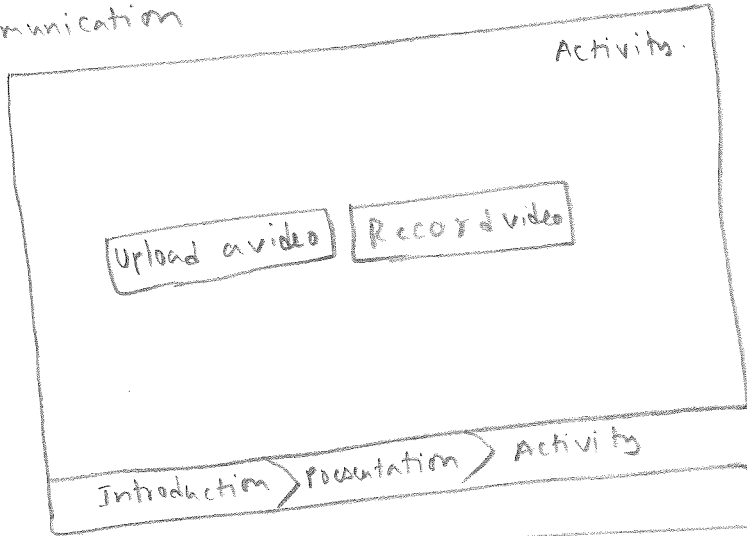 munication
Activity.
Upload a video
Record video
Introduction
Presentation
Activity